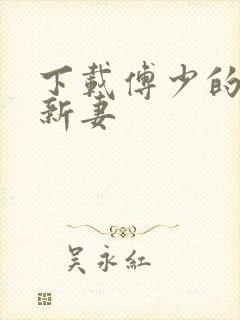 下載傅少的
新妻
吴永紅